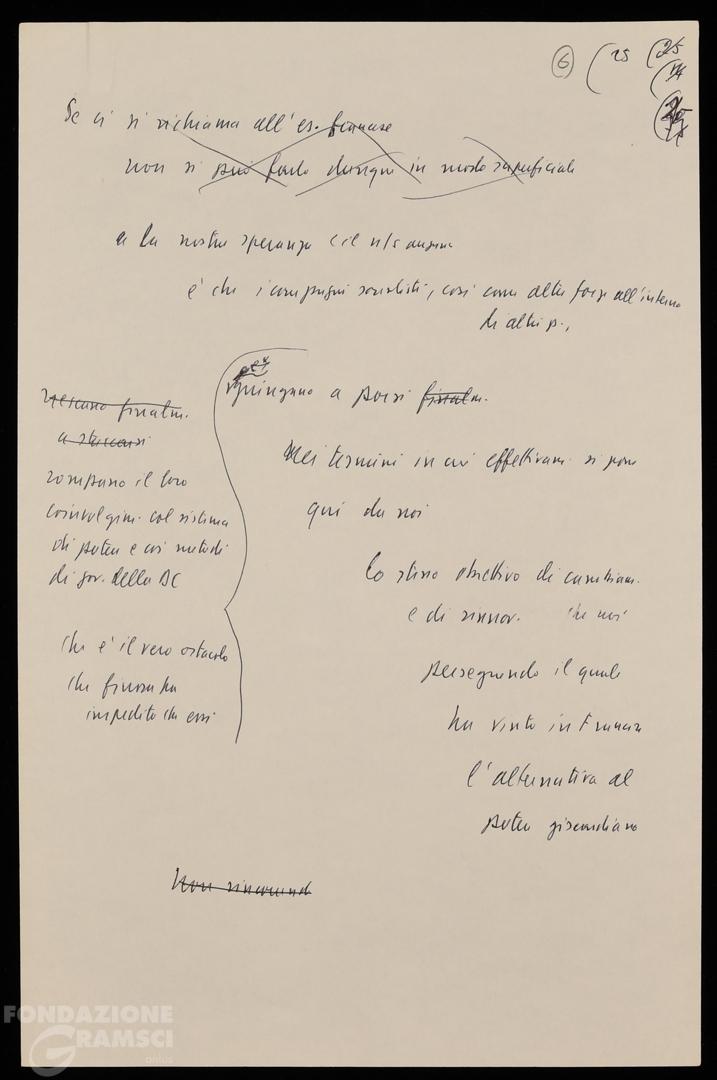 6 (25 (25
(14
Se ci si richiama all'es. francese
non si può farlo dunque in modo superficiale
e la nostra speranza (il n/s augurio
è che i compagni socialisti, così come altre forze all'interno
di altri p.,
giungano a porsi finalm.
nei termini in cui effettivam. si pone
qui da noi
lo stesso obiettivo di cambiam.
e di rinnov.
perseguendo il quale
ha vinto in Francia
l'alternativa al
potere giscardiano
riescano finalm.
a staccarsi
rompano il loro
coinvolgim. col sistema
di potere e coi metodi
di gov. della DC
che è il vero ostacolo
che finora ha
impedito che essi
Non rinunciando
FONDAZIONE
GRAMSCI
onlus